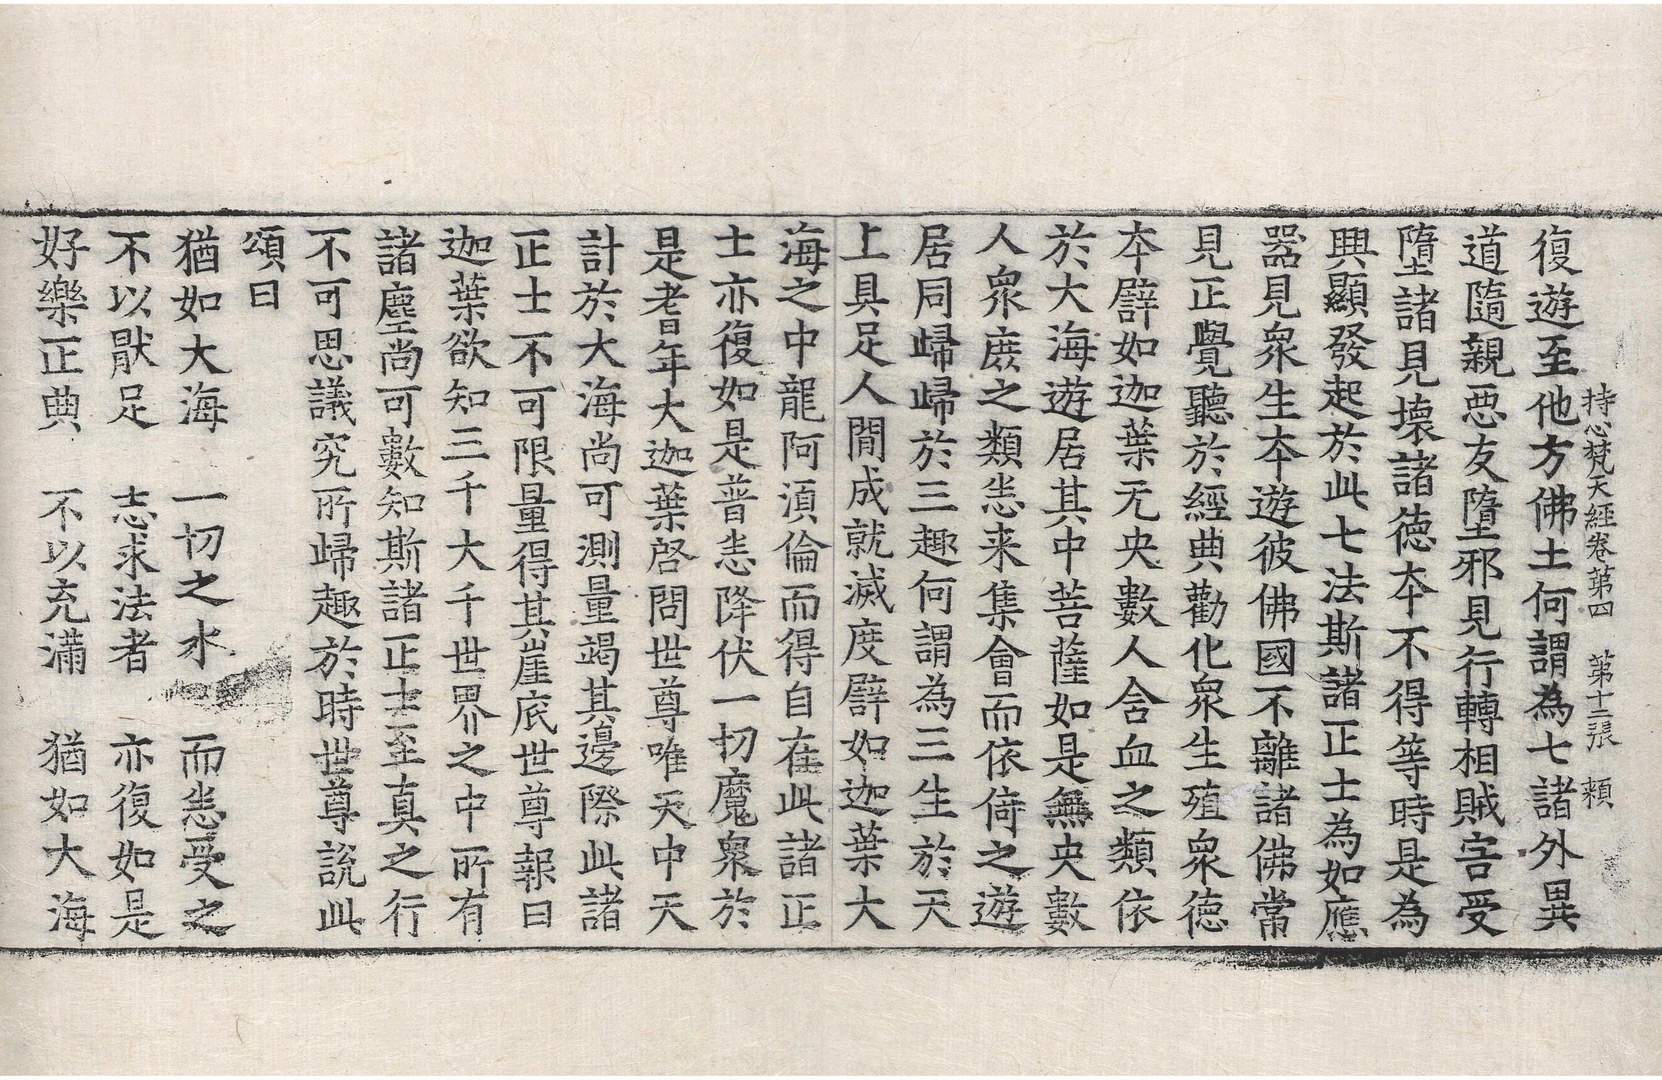 持心梵天經卷第四　第十二張　頼
復遊至他方佛土何謂為七諸外異
道隨親惡友墮邪見行轉相賊害受
墮諸見壞諸德本不得等時是為
興顯發起於此七法斯諸正士為如應
器見衆生本遊彼佛國不離諸佛常
見正覺聽於經典勸化衆生殖衆德
本譬如迦葉无央數人含血之類依
於大海遊居其中菩薩如是無央數
人衆庶之類悉来集會而依倚之遊
居同歸歸於三趣何謂為三生於天
上具足人間成就滅度譬如迦葉大
海之中龍阿須倫而得自在此諸正
士亦復如是普悉降伏一切魔衆於
是耆年大迦葉啓問世尊唯天中天
計於大海尚可測量竭其邊際此諸
正士不可限量得其崖底世尊報曰
迦葉欲知三千大千世界之中所有
諸塵尚可數知斯諸正士至真之行
不可思議究所歸趣於時世尊說此
頌曰
猶如大海　一切之水　而悉受之
不以猒足　志求法者　亦復如是
好樂正典　不以充滿　猶如大海